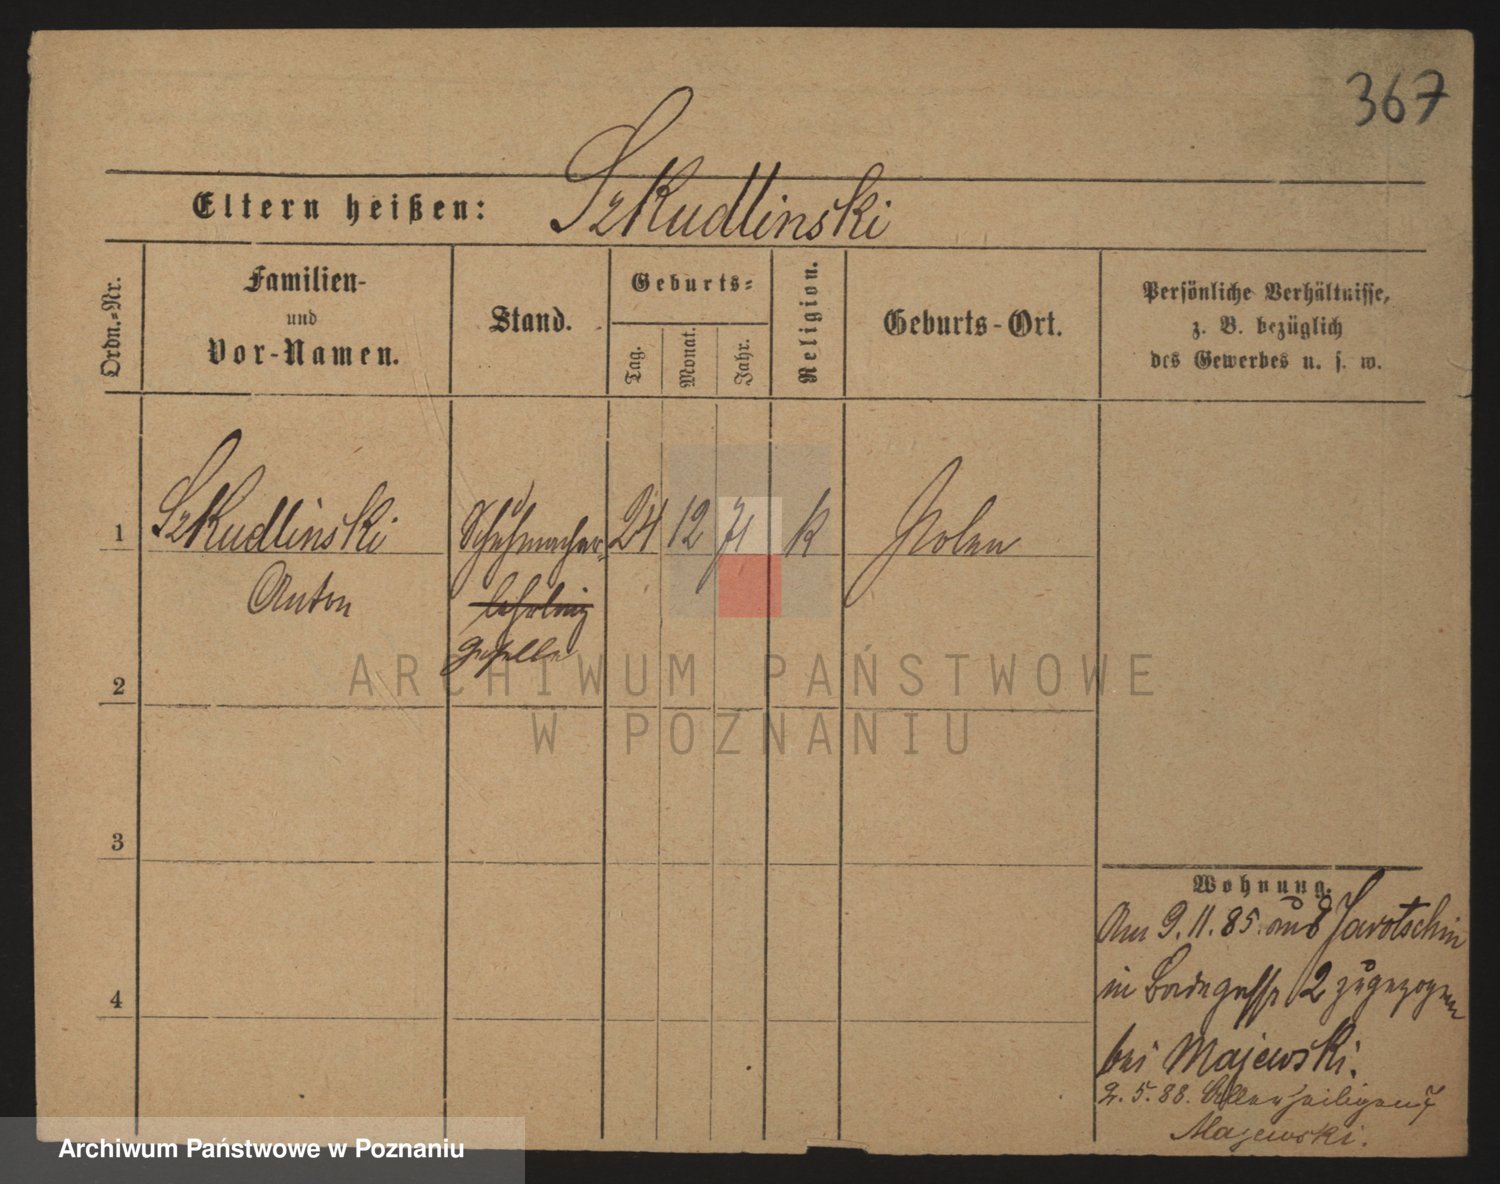 367
Eltern heißen: Szkudlinski
Ordn.-Nr.
Familien-
und
Vor-Namen.
Stand.
Geburts-
Tag.
Monat.
Jahr.
Religion.
Geburts-Ort.
Persönliche Verhältnisse,
z. B. bezüglich
des Gewerbes u. s. w.
1 Szkudlinski Schuhmacher- 24 12 71 k Polen
Anton lehrling
geselle
2
3
4
Wohnung.
Am 9.11.85. aus Jarotschin
in 2 zugezogen
bei Majewski.
2.5.88. Allerheiligen
Majewski.
ARCHIWUM PAŃSTWOWE
W POZNANIU
Archiwum Państwowe w Poznaniu